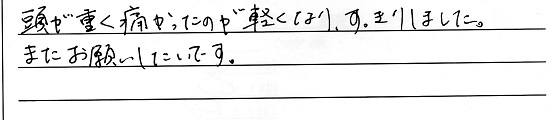 頭が重く痛かったのが軽くなり、すっきりしました。
またお願いしたいです。